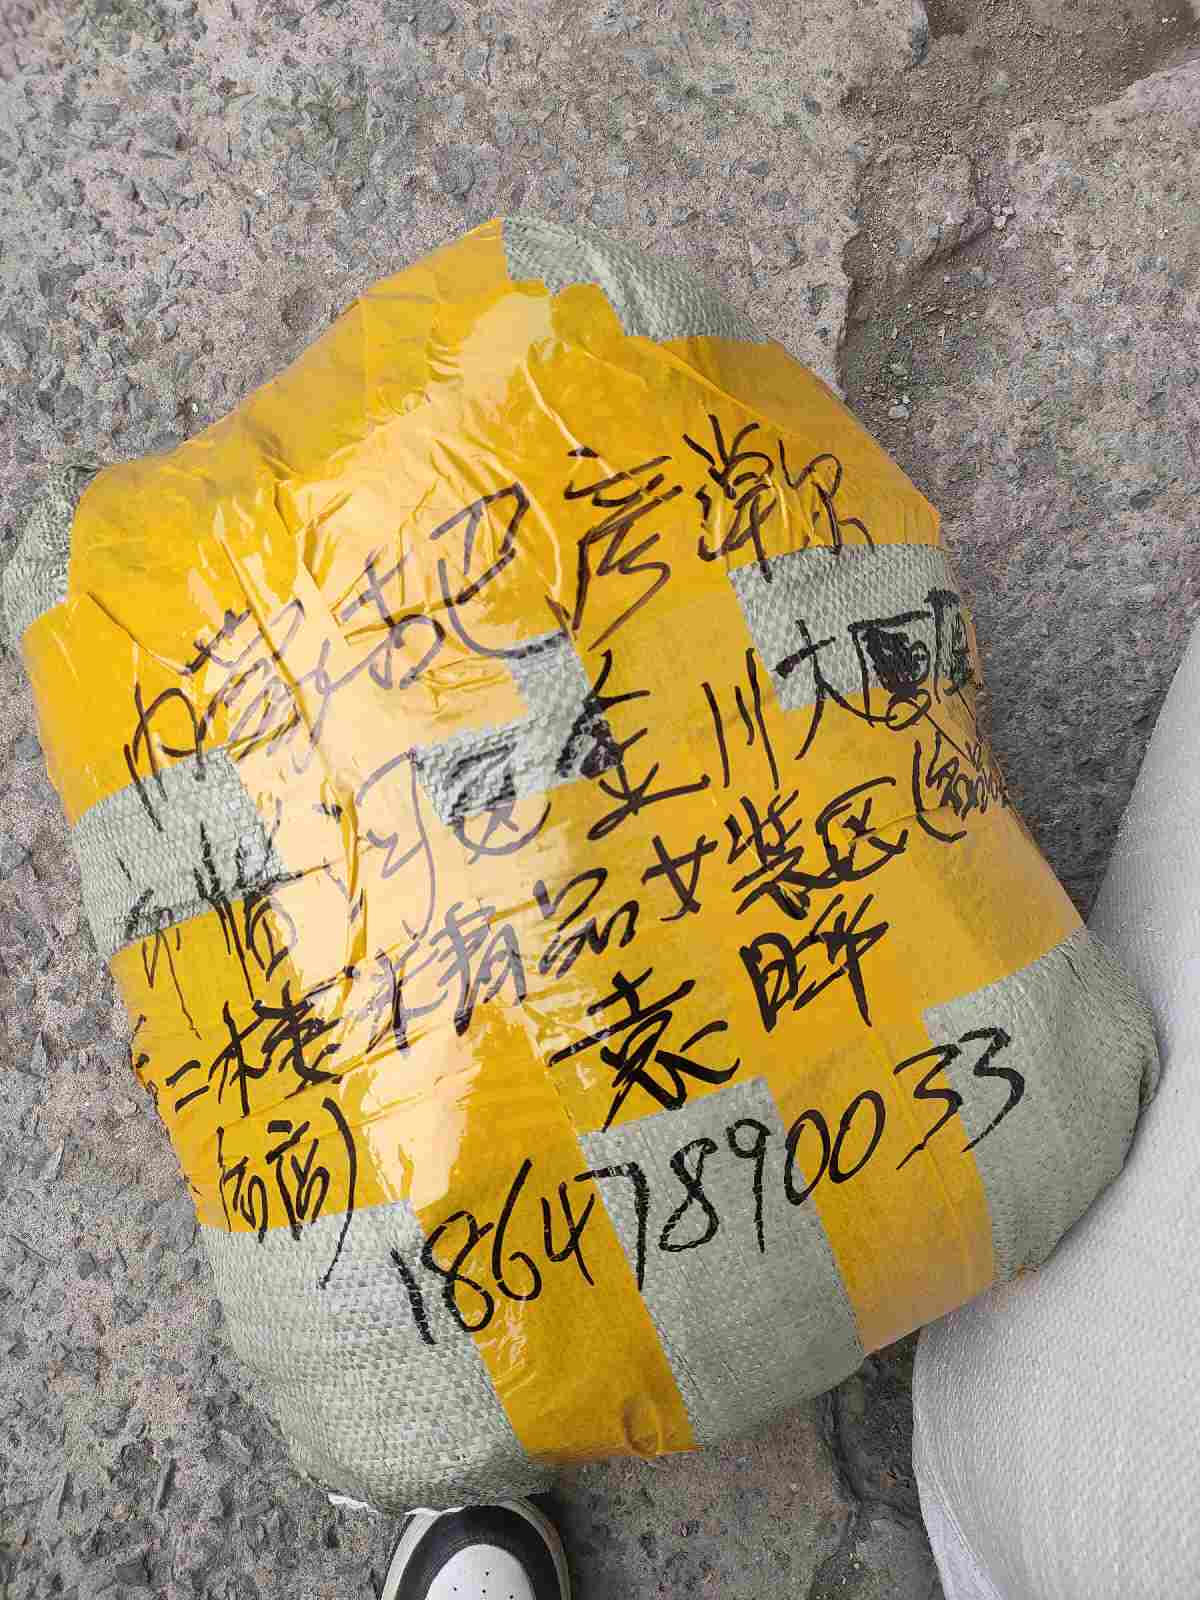 内蒙古巴彦淖尔
市临河区金川大
二楼精品女装区(
店) 袁晔
18647890033